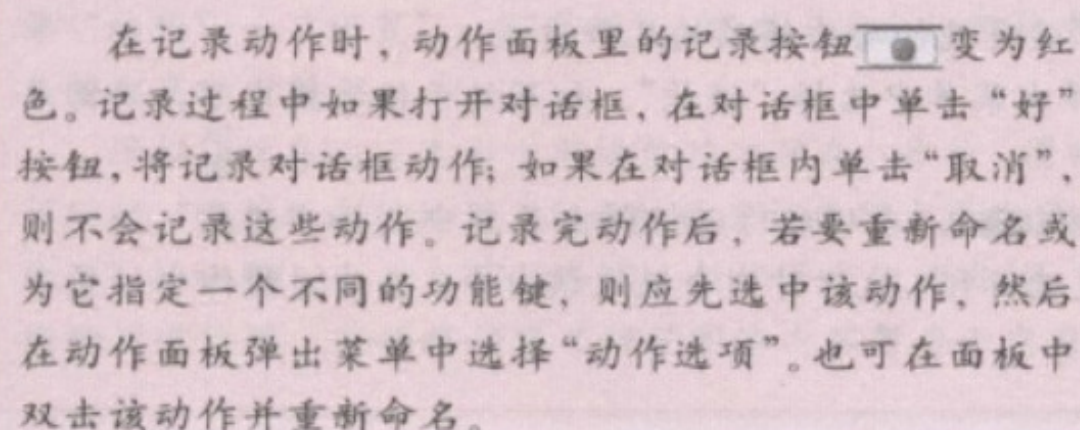 在记录动作时，动作面板里的记录按钮变为红
色。记录过程中如果打开对话框，在对话框中单击“好”
按钮，将记录对话框动作；如果在对话框内单击“取消”，
则不会记录这些动作。记录完动作后，若要重新命名或
为它指定一个不同的功能键，则应先选中该动作，然后
在动作面板弹出菜单中选择“动作选项”。也可在面板中
双击该动作并重新命名。